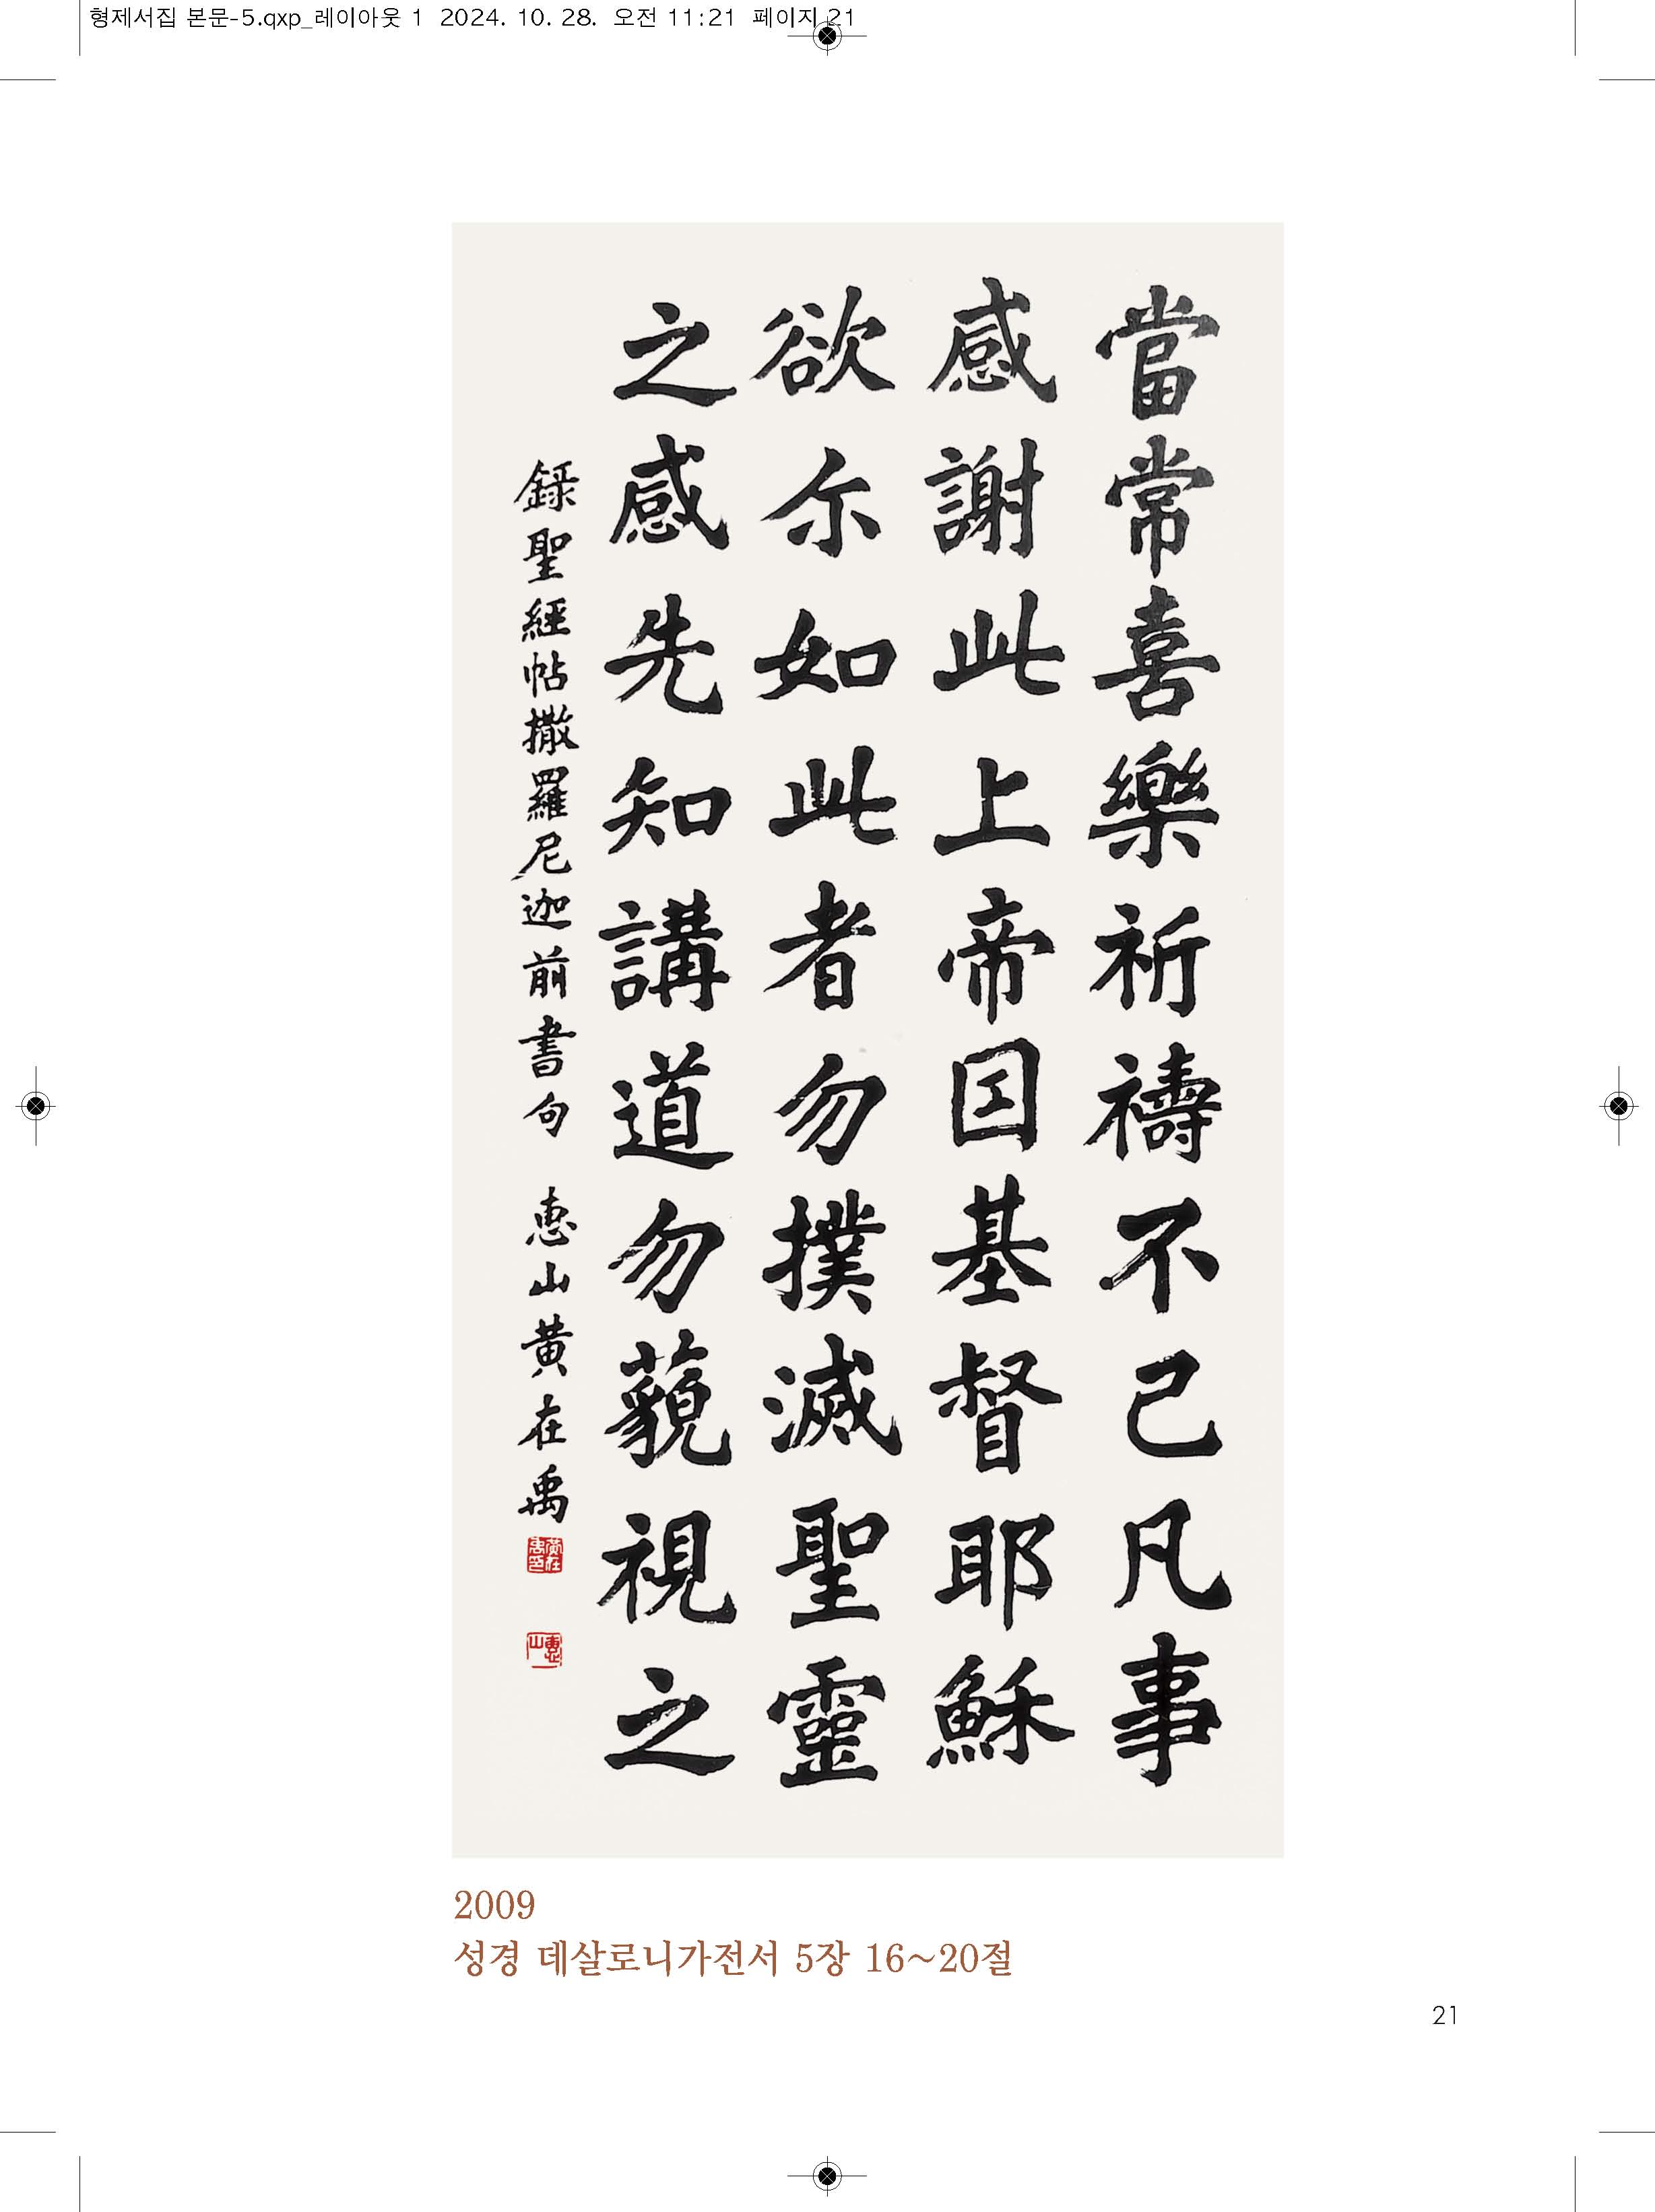 형제서집 본문-5.qxp_레이아웃 1  2024. 10. 28.  오전 11:21  페이지 21
當常喜樂祈禱不已凡事
感謝此上帝因基督耶穌
欲尒如此者勿撲滅聖靈
之感先知講道勿藐視之
錄聖經帖撒羅尼迦前書句 惠山黃在禹
黃在禹印
惠山
2009
성경 데살로니가전서 5장 16~20절
21